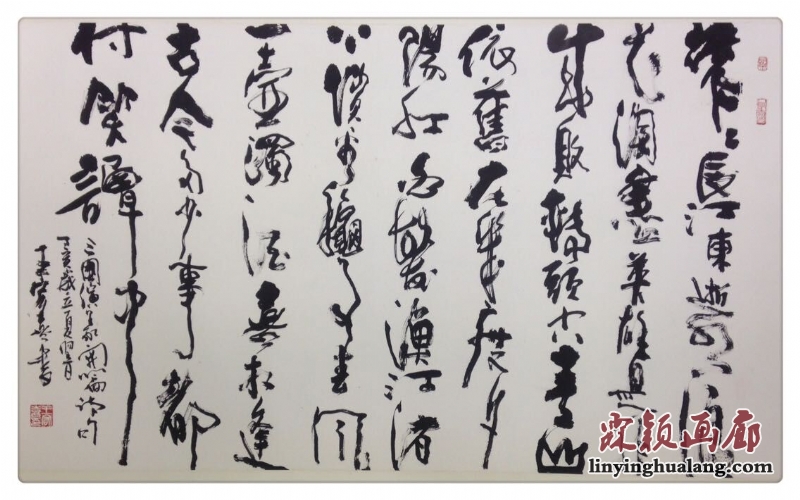 滚〻長江東逝水浪
花淘盡英雄是非
成敗轉頭空青山
依舊在幾度夕
陽紅白髮漁江渚
上慣看龝月春風
一壺濁酒喜相逢
古今多少事都
付笑譚中
三國演義開篇詞
丁亥歲立夏
霖颖画廊
linyinghualang.com